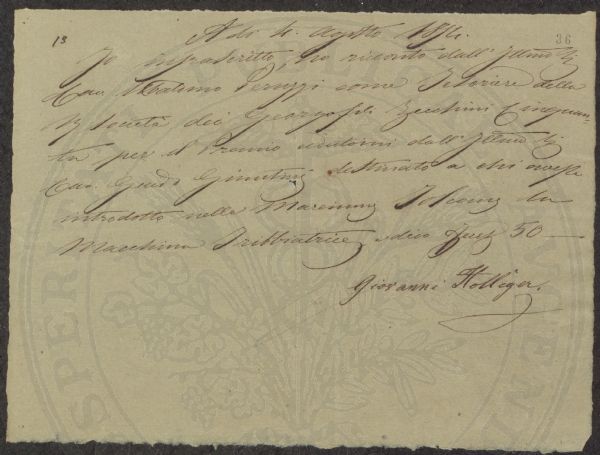 13
36
A dì 4. Agosto 18
Io infrascritto ho ricevuto dall' Illmo Sig.
Cav. Peruzzi come Tesoriere della
Società dei Georgofili Zecchini Cinquan-
ta per il Premio dall' Illmo Sig.
Cav. Guido destinato a chi avesse
introdotto nella Maremma Toscana la
Macchina Tribbiatrice, dico Zecc. 50 —
Giovanni Kolliger.